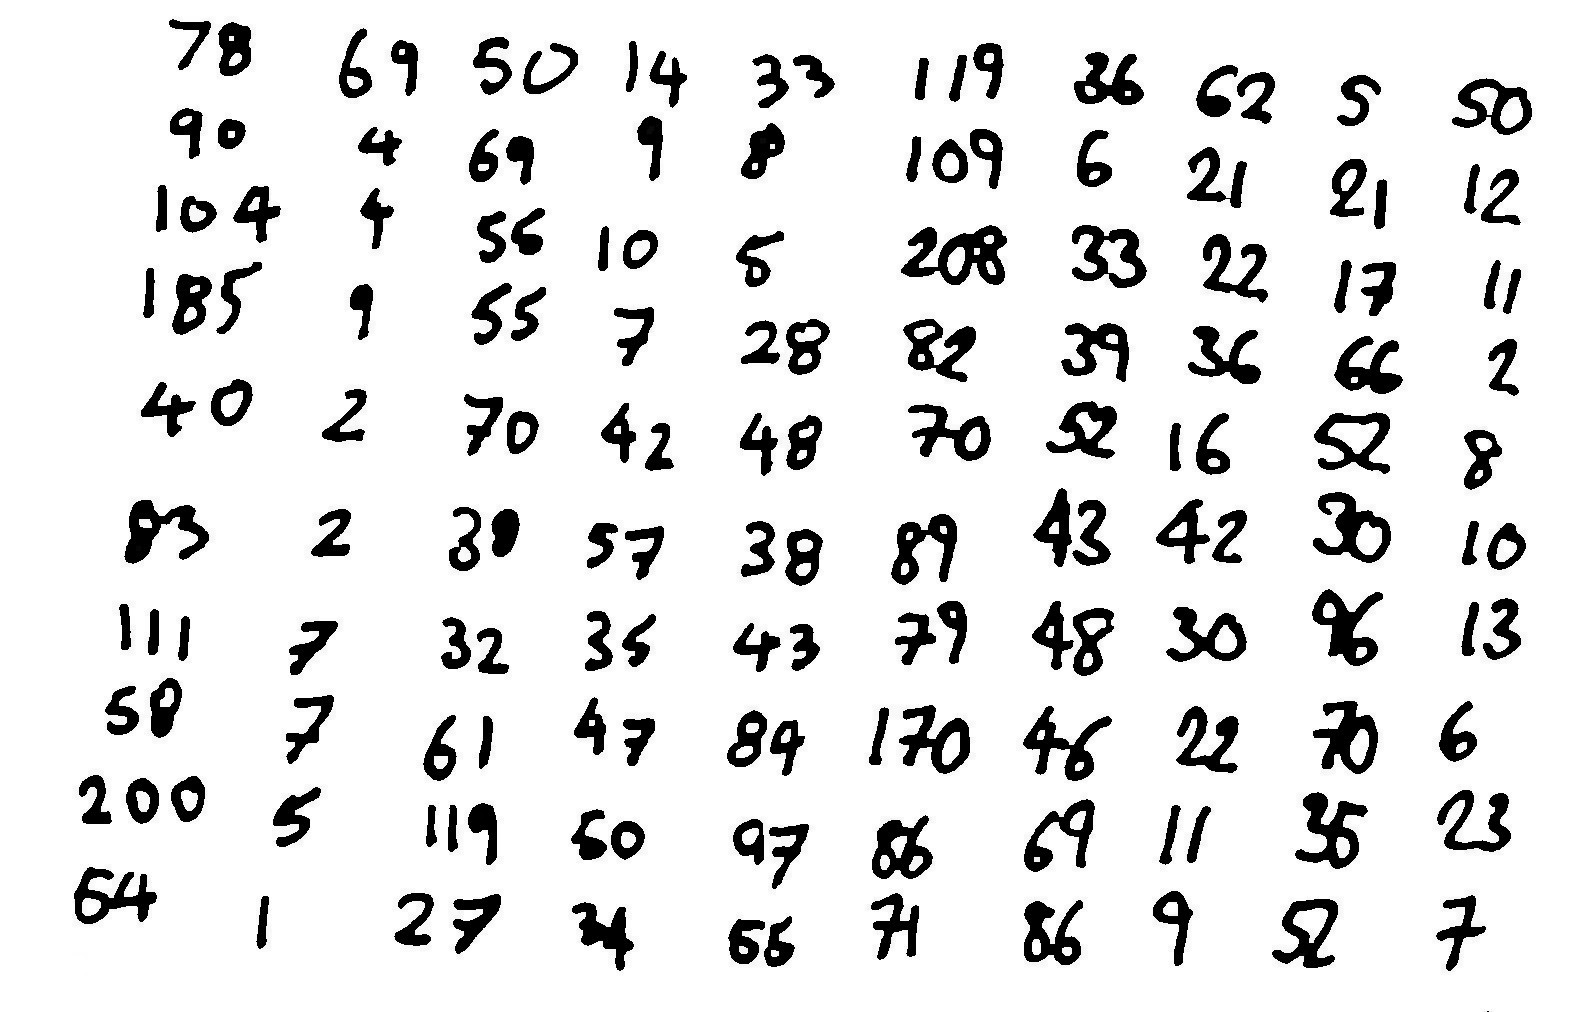 78 69 50 14 33 119 36 62 5 50
90 4 69 9 8 109 6 21 21 12
104 4 56 10 5 208 33 22 17 11
185 9 55 7 28 82 39 36 66 2
40 2 70 42 48 70 52 16 52 8
83 2 38 57 38 89 43 42 30 10
111 7 32 35 43 79 48 30 96 13
58 7 61 47 84 170 46 22 70 6
200 5 119 50 97 86 69 11 35 23
64 1 27 34 55 71 86 9 52 7